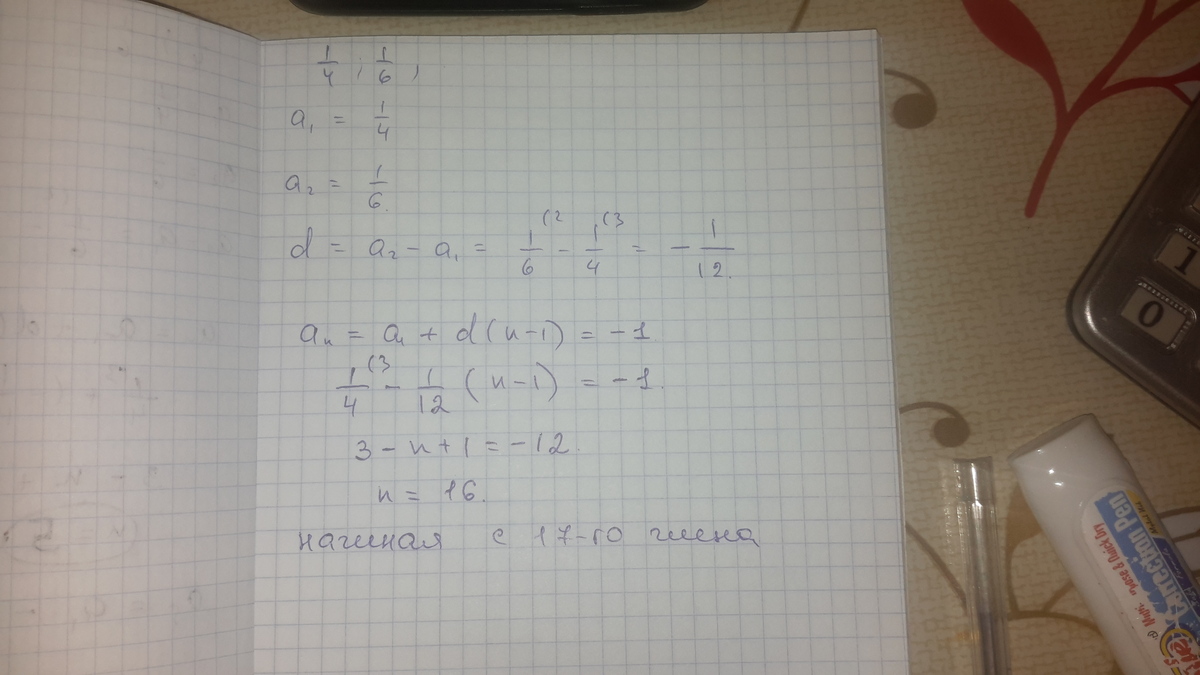 1/4 ; 1/6 ,
a₁ = 1/4
a₂ = 1/6.
d = a₂ - a₁ = 1/6⁽² - 1/4⁽³ = - 1/12.
aₙ = a₁ + d(n-1) = -1
1/4⁽³ - 1/12 (n-1) = -1.
3 - n + 1 = -12.
n = 16.
начиная с 17-го члена
1
0
Correction Pen
Magic "ypose & Quick Dry